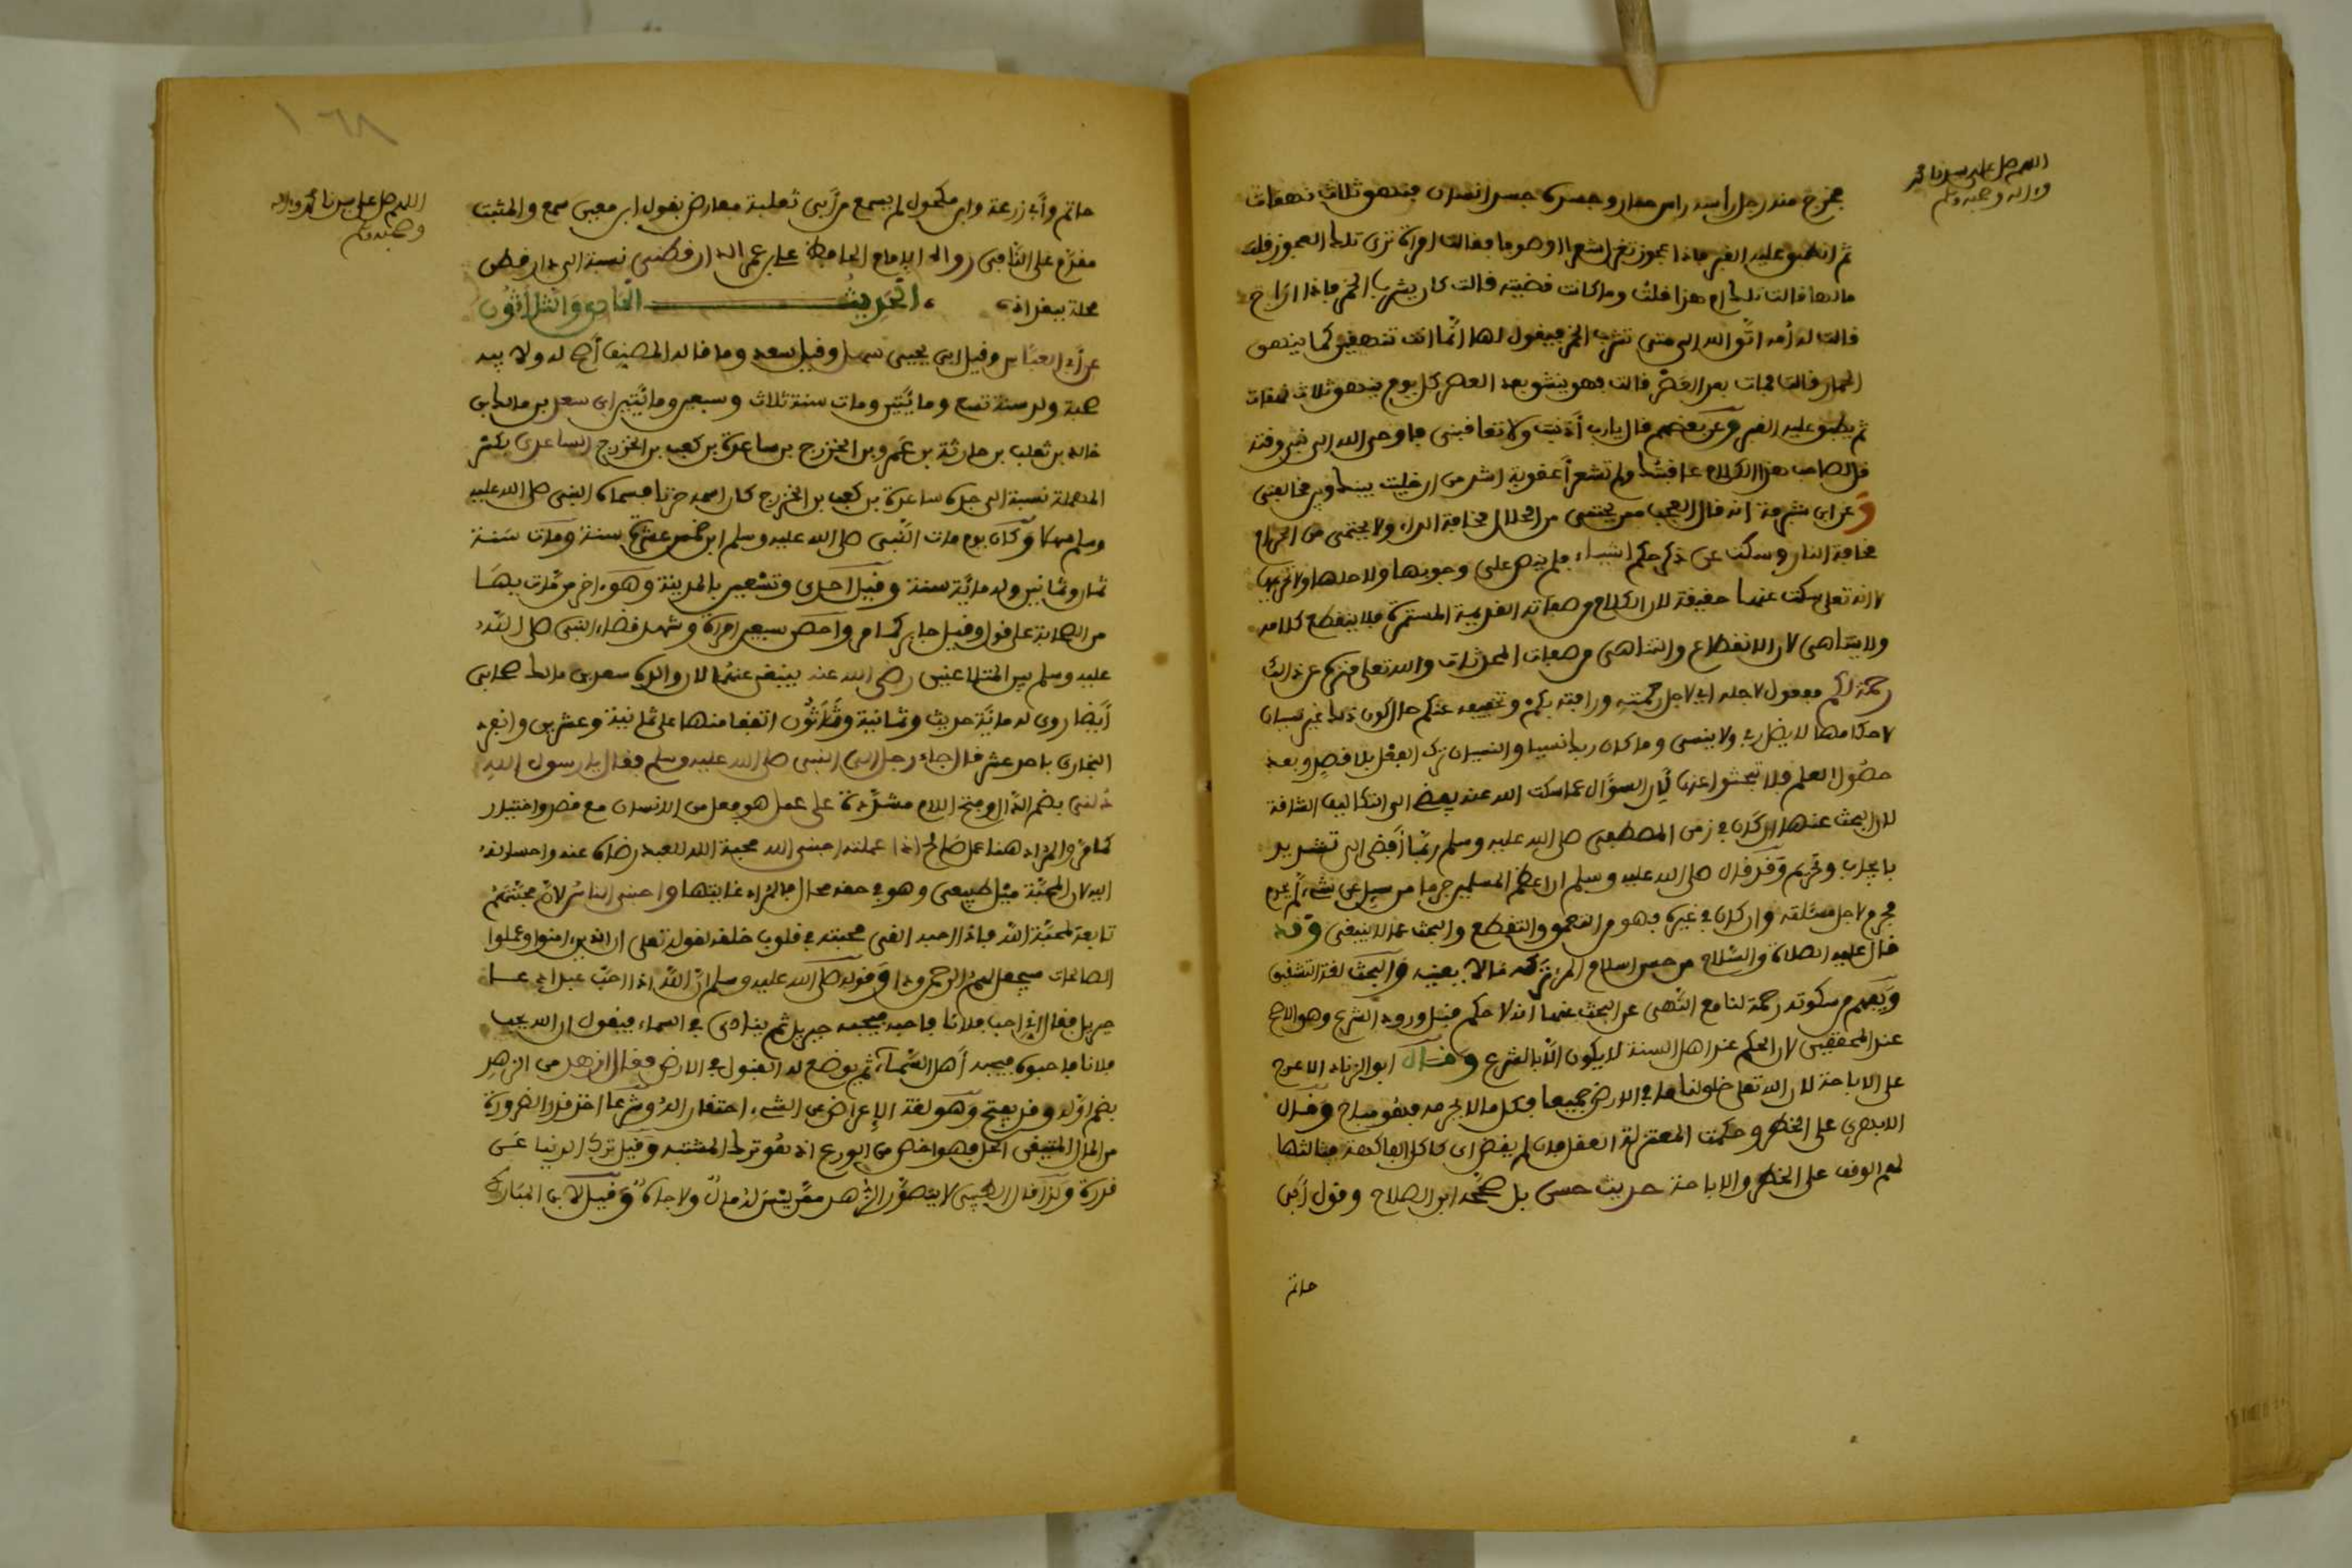 اللهم صل على سيدنا محمد
وءاله وصحبه وسلم
فخرج منه رجل رأسه راس حمار وجسده جسد انسان فنهق ثلاث نهقات
ثم انطبق عليه القبر فاذا عجوز تغزل شعرا او صوفا فقالت امراة ترى تلك العجوز قلت
مالها قالت تلك ام هذا قلت وما كانت قضيته قالت كان يشرب الخمر فاذا راح
قالت له أمه اتق الله الى متى تشرب الخمر فيقول لها انما انت تنهقين كما ينهق
الحمار قالت فمات بعد العصر قالت فهو ينشق بعد العصر كل يوم ينهق ثلاث نهقات
ثم ينطبق عليه القبر وعن بعضهم قال يارب أذنبت ولا تعاقبنى فاوحى الله الى نبي وقته
قل لصاحب هذا الكلام عاقبتك ولم تشعر أعقوبة اشد من ان خليت بينك وبين مخالفتى
وعن ابن شبرمة انه قال العجب ممن يحتمى من الحلال مخافة الداء ولا يحتمى من الحرام
مخافة النار وسكت عن ذكر حكم اشياء فلم ينص على وجوبها ولا حلها ولا تحريمها
لا انه تعلى سكت عنها حقيقة لان الكلام من صفاته القديمة المستمرة فلا ينقطع كلامه
ولا يتناهى لان الانقطاع والتناهى من صفات المحدثات والله تعلى منزه عن ذالك
رحمة لكم مفعول لاجله اي لاجل رحمته ورافته بكم وتخفيفه عنكم حال كون ذلك غير نسيان
لاحكامها لا يضل ربي ولا ينسى وما كان ربك نسيا والنسيان ترك الفعل بلا قصد وبعد
حصول العلم فلا تبحثوا عنها لان السؤال عما سكت الله عنه يفضى الى التكاليف الشاقة
لان البحث عنها ان كان في زمن المصطفى صلى الله عليه وسلم ربما أفضى الى تشديد
بايجاب وتحريم وقد قال صلى الله عليه وسلم ان اعظم المسلمين جرما من سيل عن شيء لم يحرم
فحرم لاجل مسئلته وان كان في غيره فهو من التعمق والتقطع والبحث عما لا ينبغى وقد
قال عليه الصلاة والسلام من حسن اسلام المرء تركه مالا يعنيه والبحث لغة التفتيش
ويفهم من سكوته رحمة لنا مع النهى عن البحث عنها انه لا حكم قبل ورود الشرع وهو الاصح
عند المحققين لان الحكم عند اهل السنة لا يكون الا بالشرع وقال ابو الزناد الاعرج
على الاباحة لان الله تعلى خلق لنا ما في الارض جميعا فكل ما لا يحرمه فهو مباح وقال
الابهرى على الحظر وحكمت المعتزلة العقل فان لم يقض اى كاكل الفاكهة فثالثها
لهم الوقف على الحظر والاباحة حديث حسن بل صححه ابن الصلاح وقول أبى
حاتم
١٦٨
اللهم صل على سيدنا محمد وءاله
وصحبه وسلم
حاتم وأبي زرعة وابن مكحول لم يسمع من أبى ثعلبة معارض بقول ابن معين سمع والمثبت
مقدم على النافى رواه الامام الحافظ على بن عمر الدارقطنى نسبة الى دار قطن
محلة ببغداد الحديث الحادى والثلاثون
عن أبي العباس وقيل ابى يحيى سهل وقيل سعد وما قاله المصنف أصح له ولابيه
صحبة ولد سنة تسع ومات سنة ثلاث وسبعين ابن سعد بن مالك بن
خالد بن ثعلب بن حارثة بن عمرو بن الخزرج بن ساعدة بن كعب بن الخزرج الساعدى بكسر
المهملة نسبة الى جده ساعدة بن كعب بن الخزرج كان اسمه حزنا فسماه النبى صلى الله عليه
وسلم سهلا وكان يوم مات النبى صلى الله عليه وسلم ابن خمس عشرة سنة ومات سنة
ثمان وثمانين وله مائة سنة وقيل احدى وتسعين بالمدينة وهو ءاخر من مات بها
من الصحابة على قول وقيل جابر كما مر واحصن سبعين امراة وشهد قضاء النبى صلى الله
عليه وسلم بين المتلاعنين رضى الله عنه ينبغى عنهما لان والده سعد بن مالك صحابى
أيضا روى له مائة حديث وثمانية وثمانون اتفقا منها على ثمانية وعشرين وانفرد
البخارى باحد عشر قال جاء رجل الى النبى صلى الله عليه وسلم فقال يا رسول الله
دلنى بضم الدال وفتح اللام مشددة على عمل هو فعل من الانسان مع قصد واختيار
كما مر والمراد هنا عمل صالح اذا عملته احبنى الله محبة الله للعبد رضاه عنه واحسانه
اليه لان المحبة ميل طبيعى وهو في حقه محال فالمراد غايتها واحبنى الناس لان محبتهم
تابعة لمحبة الله فاذا احبه القى محبته في قلوب خلقه لقوله تعلى ان الذين ءامنوا وعملوا
الصالحات سيجعل لهم الرحمن ودا وقوله صلى الله عليه وسلم ان الله اذا احب عبدا دعا
جبريل فقال اني احب فلانا فاحبه فيحبه جبريل ثم ينادى في السماء فيقول ان الله يحب
فلانا فاحبوه فيحبه أهل السماء ثم يوضع له القبول في الارض فقال ازهد من الزهد
بضم اوله وقد يفتح وهو لغة الاعراض عن الشيء احتقارا له وشرعا اخذ قدر الضرورة
من الحلال المتيقن الحل فهو اخص من الورع اذ هو ترك المشتبه وقيل ترك الدنيا عن
قدرة ولذا قال الحليمى لا يتصور الزهد ممن ليس له مال ولا جاه وقيل لابن المبارك